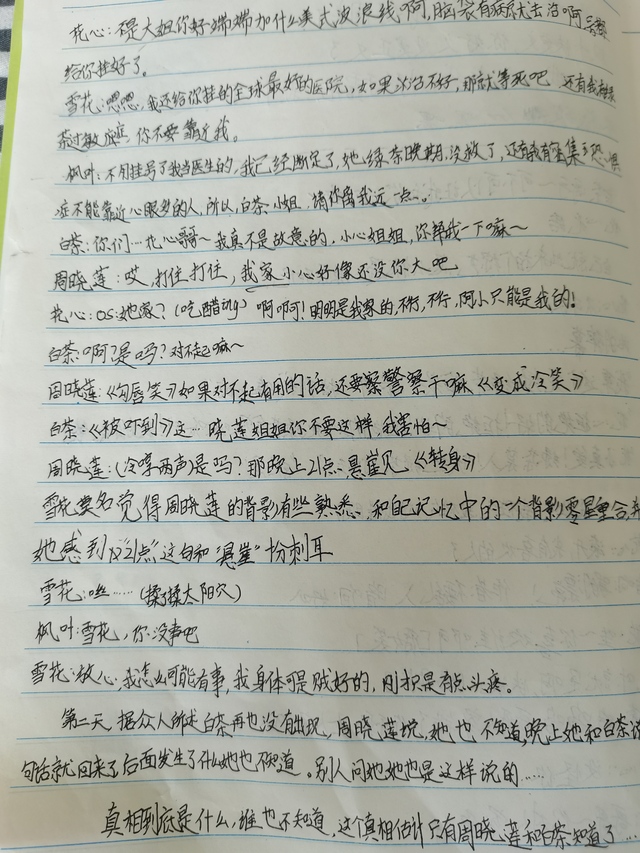 花心:不是大姐你好端端加什么美式波浪线啊,脑袋有病就去治啊,号都
给你挂好了。
雪花:嗯嗯,我还给你挂的全球最好的医院,如果治不好,那就等死吧 还有我有绿
茶过敏症,你不要靠近我。
枫叶:不用挂号了我当医生的,我已经断定了,她绿茶晚期,没救了,还有我有密集恐惧
症不能靠近心眼多的人,所以,白茶小姐,请你离我远一点~。
白茶:你们…花心哥哥~我真不是故意的,小心姐姐,你帮我一下嘛~
周晓莲:哎,打住打住,我家小心好像还没你大吧
花心:OS:她家?(吃醋ing)啊啊!明明是我家的,不行,不行,阿小只能是我的!
白茶:啊?是吗?对不起嘛~
周晓莲:《勾唇笑》如果对不起有用的话,还要警察干嘛《变成冷笑》
白茶:《被吓到》这…晓莲姐姐你不要这样,我害怕~
周晓莲:(冷哼两声)是吗?那晚上21点、悬崖见《转身》
雪花莫名觉得周晓莲的背影有些熟悉、和自己记忆中的一个背影零星重合并
她感到“21点”这句和“悬崖”格外刺耳
雪花:嘶……(揉揉太阳穴)
枫叶:雪花,你没事吧
雪花:放心,我怎么可能有事,我身体可是贼好的,刚才只是有点头疼。
第二天,据众人所述白茶再也没有出现,周晓莲说,她也不知道,晚上她和白茶说
句话就回来了后面发生了什么她也不知道。别人问她她也是这样说的……
真相到底是什么,谁也不知道,这个真相估计只有周晓莲和白茶知道了…